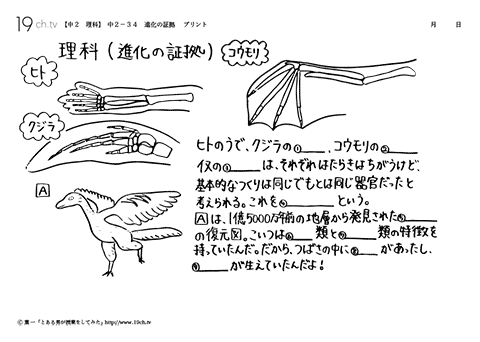 19 ch.tv 【中2 理科】 中2-34 進化の証拠 プリント 月 日
理科(進化の証拠)
コウモリ
ヒト
クジラ
ヒトのうで、クジラの① 、コウモリの②
イヌの③ は、それぞれはたらきはちがうけど、
基本的なつくりは同じでもとは同じ器官だったと
考えられる。これを④ という。
A
Aは、1億5000万年前の地層から発見された⑤
の復元図。こいつは⑥ 類と⑦ 類の特徴を
持っていたんだ。だから、つばさの中に⑧ があったし、
⑨ が生えていたんだよ!
Ⓒ 葉一「とある男が授業をしてみた」http://www.19ch.tv